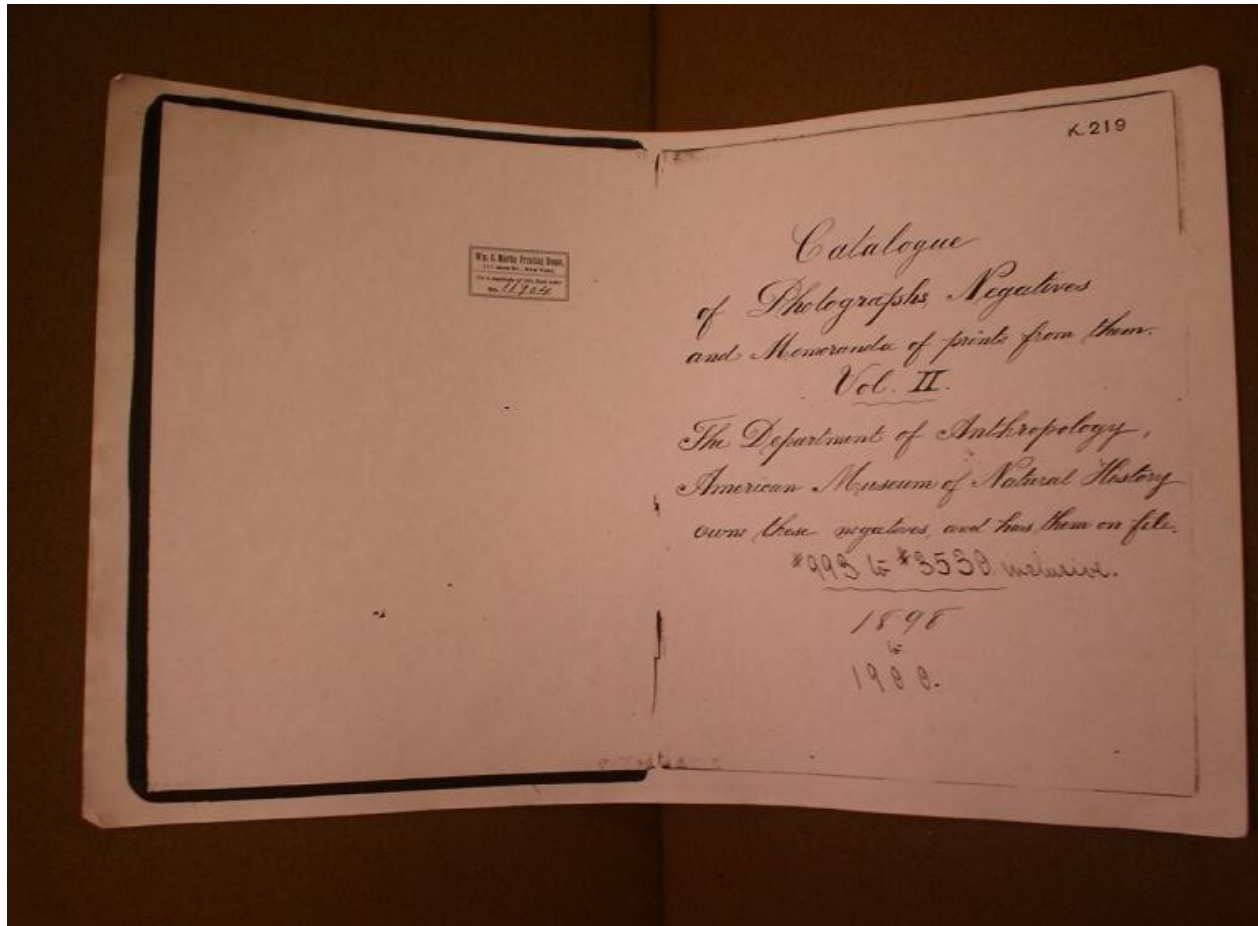 Wm. G. Martin Printing House,
New York.
No. 11924
K.219
Catalogue
of Photographs, Negatives
and Memoranda of prints from them.
Vol. II.
The Department of Anthropology,
American Museum of Natural History
owns these negatives, and has them on file.
#993 to #3530 inclusive.
1898
to
1900.